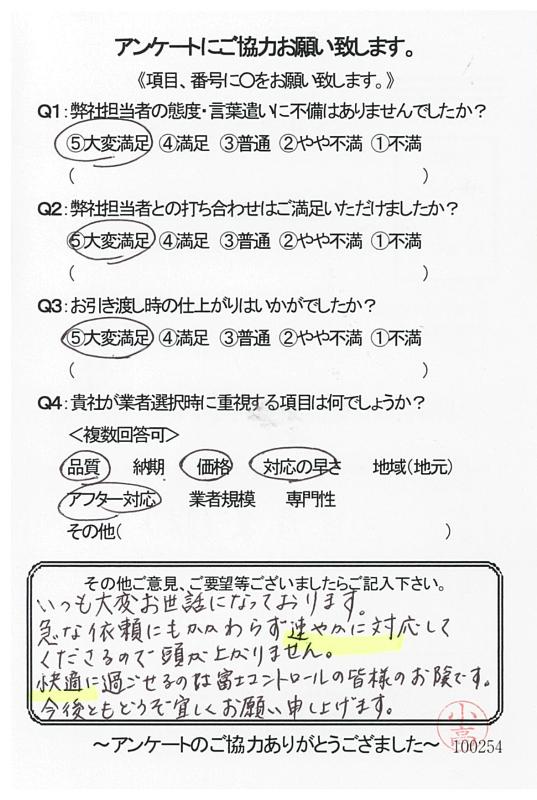 アンケートにご協力お願い致します。
《項目、番号に〇をお願い致します。》
Q1：弊社担当者の態度・言葉遣いに不備はありませんでしたか？
⑤大変満足 ④満足 ③普通 ②やや不満 ①不満
(　)
Q2：弊社担当者との打ち合わせはご満足いただけましたか？
⑤大変満足 ④満足 ③普通 ②やや不満 ①不満
(　)
Q3：お引き渡し時の仕上がりはいかがでしたか？
⑤大変満足 ④満足 ③普通 ②やや不満 ①不満
(　)
Q4：貴社が業者選択時に重視する項目は何でしょうか？
＜複数回答可＞
品質 納期 価格 対応の早さ 地域(地元)
アフター対応 業者規模 専門性
その他(　)
その他ご意見、ご要望等ございましたらご記入下さい。
いつも大変お世話になっております。
急な依頼にもかかわらず速やかに対応して
くださるので頭が上がりません。
快適に過ごせるのは富士コントロールの皆様のお陰です。
今後ともどうぞ宜しくお願い申し上げます。
小高
～アンケートのご協力ありがとうござました～ 100254